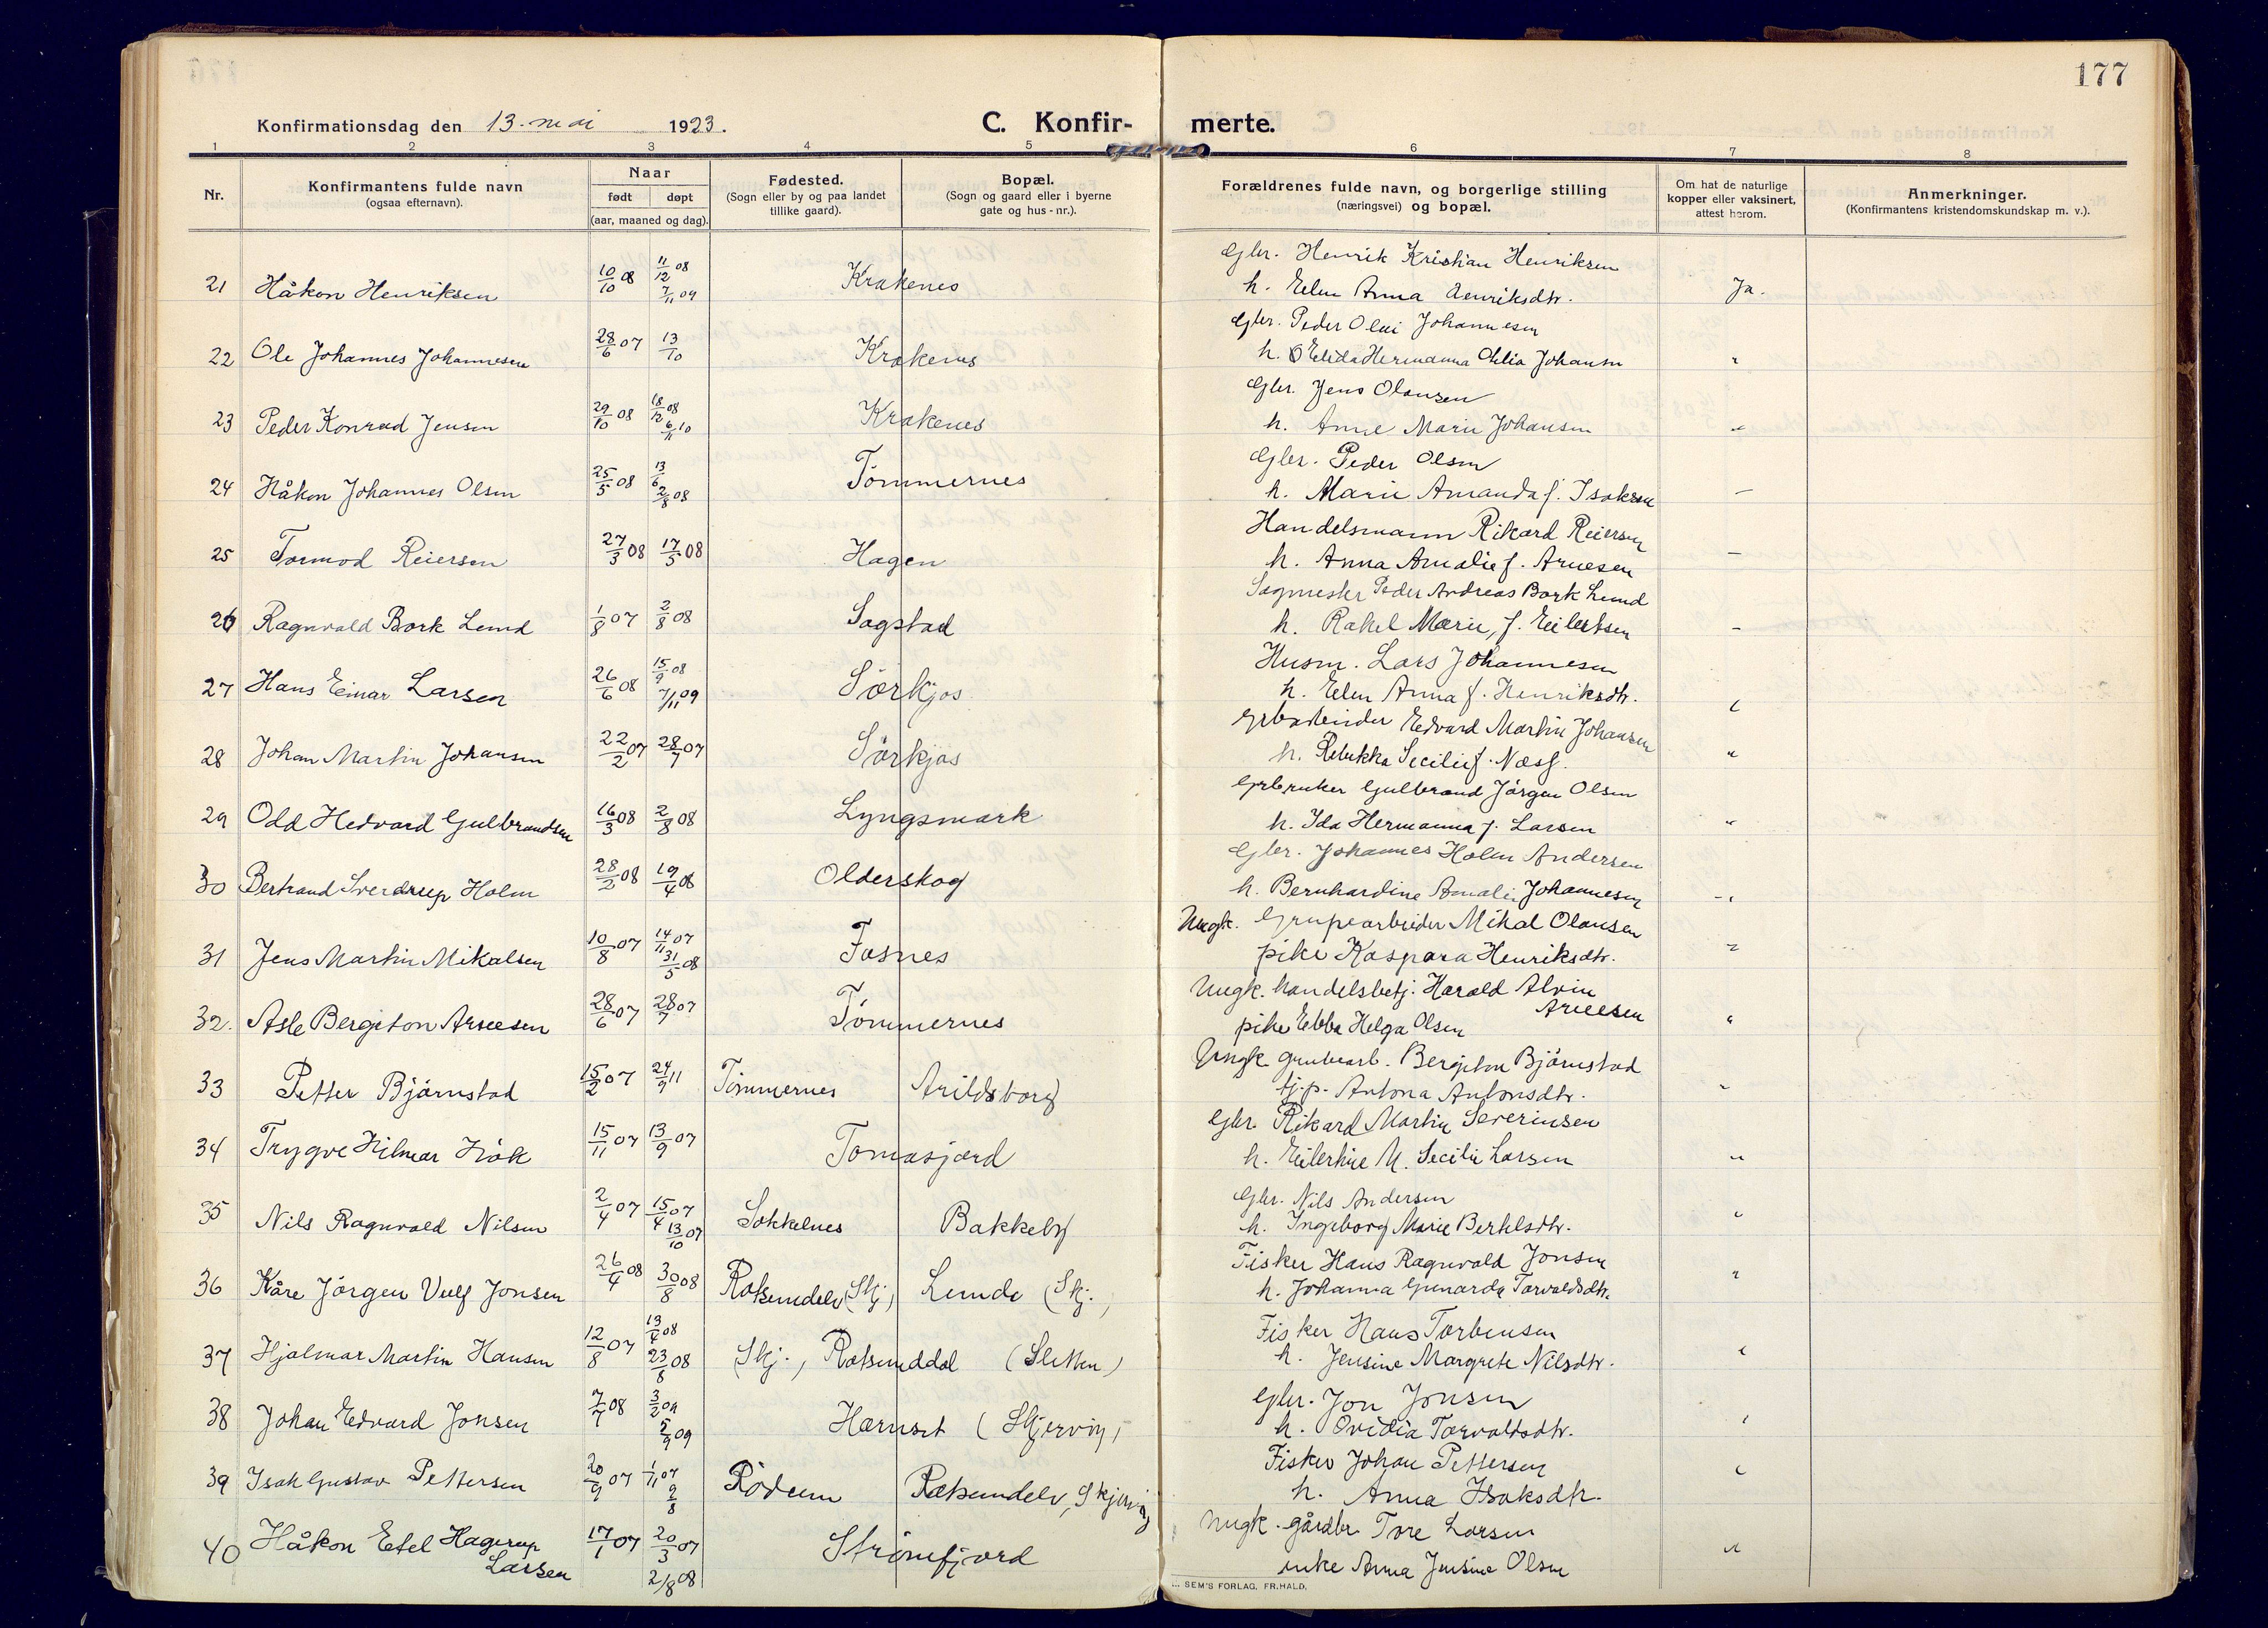 177
Konfirmationsdag den 13. mai 1923.
C. Konfir- merte.
1 2 3 4 5 6 7 8
Nr.
Konfirmantens fulde navn
(ogsaa efternavn).
Naar
født døpt
(aar, maaned og dag).
Fødested.
(Sogn eller by og paa landet
tillike gaard).
Bopæl.
(Sogn og gaard eller i byerne
gate og hus-nr.).
Forældrenes fulde navn, og borgerlige stilling
(næringsvei) og bopæl.
Om hat de naturlige
kopper eller vaksinert,
attest herom.
Anmerkninger.
(Konfirmantens kristendomskundskap m. v.).
21 Håkon Henriksen 10/10 08 11/12 08 7/11 09 Krakenes Gbr. Henrik Kristian Henriksen
h. Elen Anna Henriksdtr. Ja.
22 Ole Johannes Johannesen 28/6 07 13/10 Krakenes Gbr. Peder Olai Johannesen
h. Elida Hermanna Johansn "
23 Peder Konrad Jensen 29/10 08 18/12 08 6/11 10 Krakenes Gbr. Jens Olausen
h. Anne Marie Johansen "
24 Håkon Johannes Olsen 25/5 08 13/6 2/8 08 Tömmernes Gbr. Peder Olsen
h. Marie Amanda f. Isaksen —
25 Tormod Reiersen 27/3 08 17/5 08 Hagen Handelsmann Rikard Reiersen
h. Anna Amalie f. Arnesen —
26 Ragnvald Bork Lund 1/8 07 2/8 08 Sagstad Sagmester Peder Andreas Bork Lund
h. Rakel Marie, f. Eilertsen —
27 Hans Einar Larsen 26/6 08 15/9 08 7/11 09 Sörkjos Husm. Lars Johannesen
h. Elen Anna f. Henriksdtr. "
28 Johan Martin Johansen 22/2 07 28/7 07 Sörkjos Edvard Martin Johansen
h. Rebekka Secilie f. Næss. "
29 Odd Hedvard Gulbrandsen 16/3 08 2/8 08 Lyngsmark Grbruker Gulbrand Jörgen Olsen
h. Ida Hermanna f. Larsen "
30 Bertrand Sverdrup Holm 28/2 08 19/4 08 Olderskog Gbr. Johannes Holm Andersen
h. Bernhardine Amalie Johannesen "
31 Jens Martin Mikalsen 10/8 07 14/11 07 31/5 08 Tasnes Ungk. Grupearbeider Mikal Olausen
pike Kaspara Henriksdtr. "
32. Asle Bergiton Arnesen 28/6 07 28/7 07 Tömmernes Ungk. handelsbetj. Harald Alvin
Arnesen
pike Ebba Helga Olsen "
33 Petter Björnstad 15/2 07 24/9 11 Tömmernes Arildsborg Ungk. grubearb. Bergiton Björnstad
tj.p. Antona Antonsdtr. "
34 Trygve Hilmar Hök 15/11 07 13/9 07 Tomasjord Gbr. Rikard Martin Severinsen
h. Eilertine M. Secilie Larsen "
35 Nils Ragnvald Nilsen 2/4 07 15/4 07 13/10 07 Sokkelnes Bakkeby Gbr. Nils Andersen
h. Ingeborg Marie Bertelsdtr. "
36 Kåre Jörgen Vulf Jonsen 26/4 08 30/8 08 Rotsundelv (Skj.) Lunde (Skj.) Fisker Hans Ragnvald Jonsen
h. Johanna Gunarda Torvaldsdtr. "
37 Hjalmar Martin Hansen 12/8 07 13/4 08 23/8 08 (Skj.) Rotsunddal (Sletten) Fisker Hans Torbensen
h. Jensine Margrete Nilsdtr. "
38 Johan Edvard Jonsen 7/7 08 3/2 09 5/9 09 Hamset (Skjervöy) Gbr. Jon Jonsen
h. Ovidia Torvaldsdtr. "
39 Isak Gustav Pettersen 20/9 07 1/11 07 9/8 Rödum Rotsundelv, Skjervöy Fisker Johan Pettersen
h. Anna Isaksdtr. "
40 Håkon Etel Hagerup
Larsen 17/1 07 20/3 07 2/8 08 Strömfjord Ungk. gårdbr. Tore Larsen
enke Anna Jensine Olsen "
SEM'S FORLAG, FR.HALD.